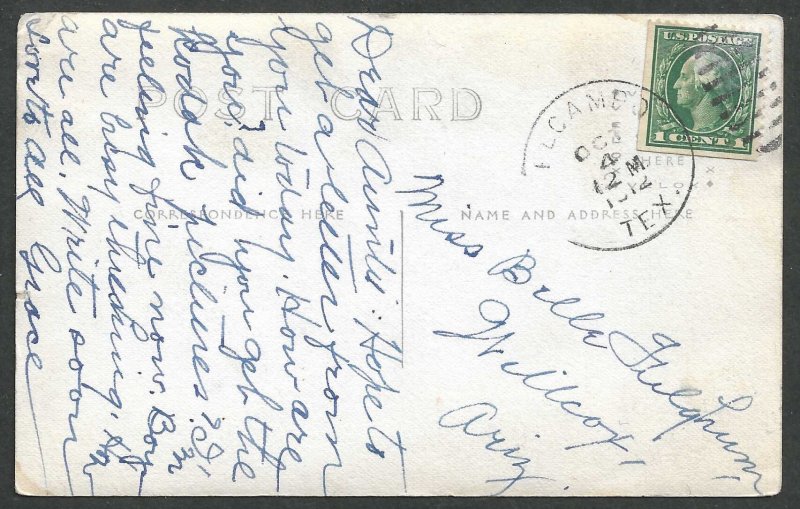 POST CARD
CORRESPONDENCE HERE
NAME AND ADDRESS HERE
HERE
U.S. POSTAGE
1 CENT 1
EL CAMPO
OCT
4
12 M
1912
TEX.
Dear Aunts: Hope to
get a letter from
you today. How are
you? did you get the
Kodak pictures? I'm
feeling fine now. Boys
are busy threshing. How
are all. Write soon
to all Grace
Miss Bella Fulghum,
Willcox,
Ariz.